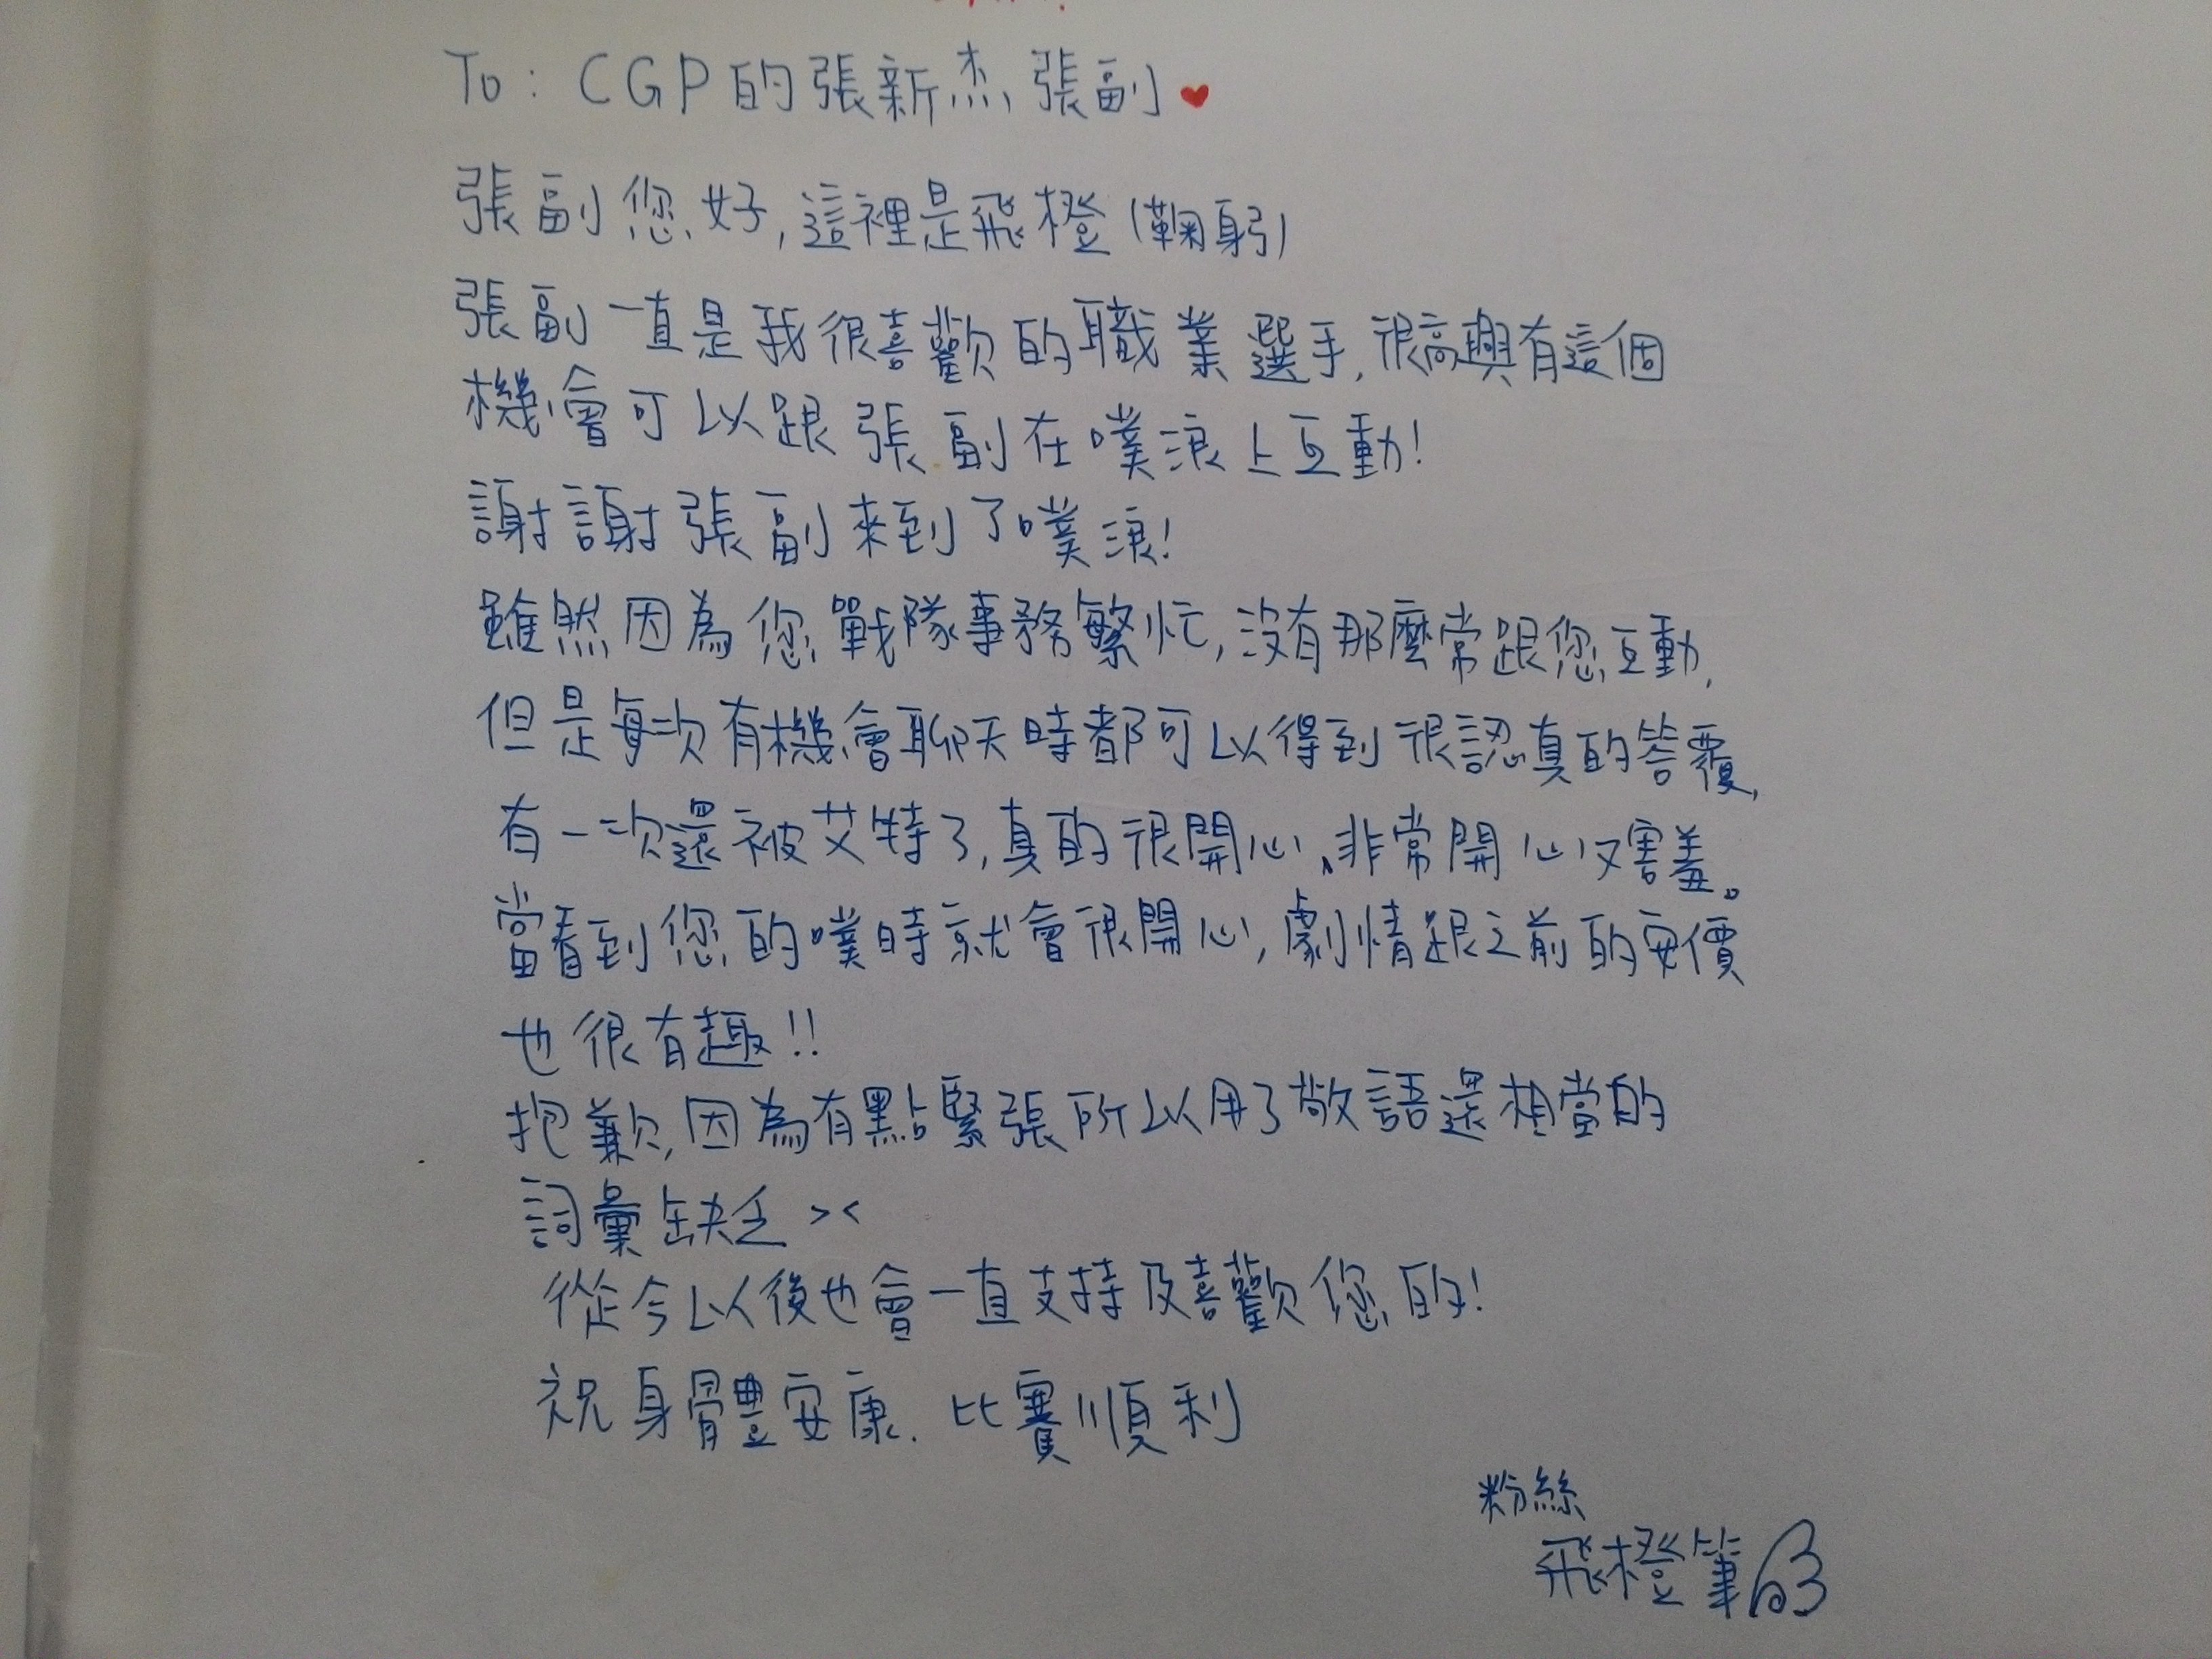 To: CGP的張新杰張副♥
張副您好,這裡是飛橙(鞠躬)
張副一直是我很喜歡的職業選手,很高興有這個
機會可以跟張副在噗浪上互動!
謝謝張副來到了噗浪!
雖然因為您戰隊事務繁忙,沒有那麼常跟您互動,
但是每次有機會聊天時都可以得到很認真的答覆,
有一次還被艾特了,真的很開心、非常開心又害羞。
當看到您的噗時就會很開心,劇情跟之前的安價
也很有趣!!
抱歉,因為有點緊張所以用了敬語還相當的
詞彙缺乏><
從今以後也會一直支持及喜歡您的!
祝身體安康.比賽順利
粉絲
飛橙筆